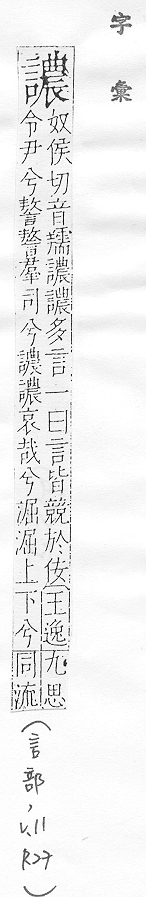 字彙
譨
奴侯切音譨譨多言一曰言皆競於佞王逸九思
令尹兮謷謷羣司兮譨譨哀哉兮淈淈上下兮同流
(言部, v.11 R27)